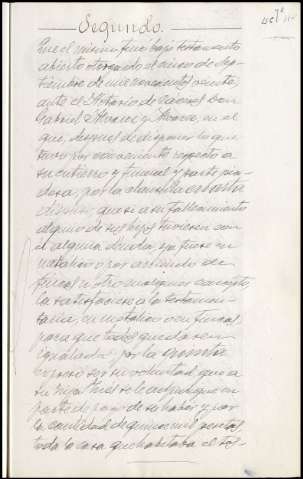 Segundo.
Que el mismo finó bajo testamento
abierto otorgado el cinco de Sep-
tiembre de mil novecientos veinte,
ante el Notario de don
Gabriel Alvarez y Alvarez, en el
que, después de disponer lo que
tuvo por conveniente respecto a
su entierro y funeral y parte pia-
dosa, por la cláusula
que si a su fallecimiento
alguno de sus hijos tuviesen con
él alguna deuda, ya fuese en
metálico o por
fincas u otro cualquier concepto,
la satisfaciese a la testamen-
taría, en metálico o en fincas,
para que todos queden
igualados; por la
expresó ser su voluntad, que a
su hija Inés se le adjudique en
parte de pago de su haber y por
la cantidad de quince mil pesetas
toda la casa que habitaba el tes-